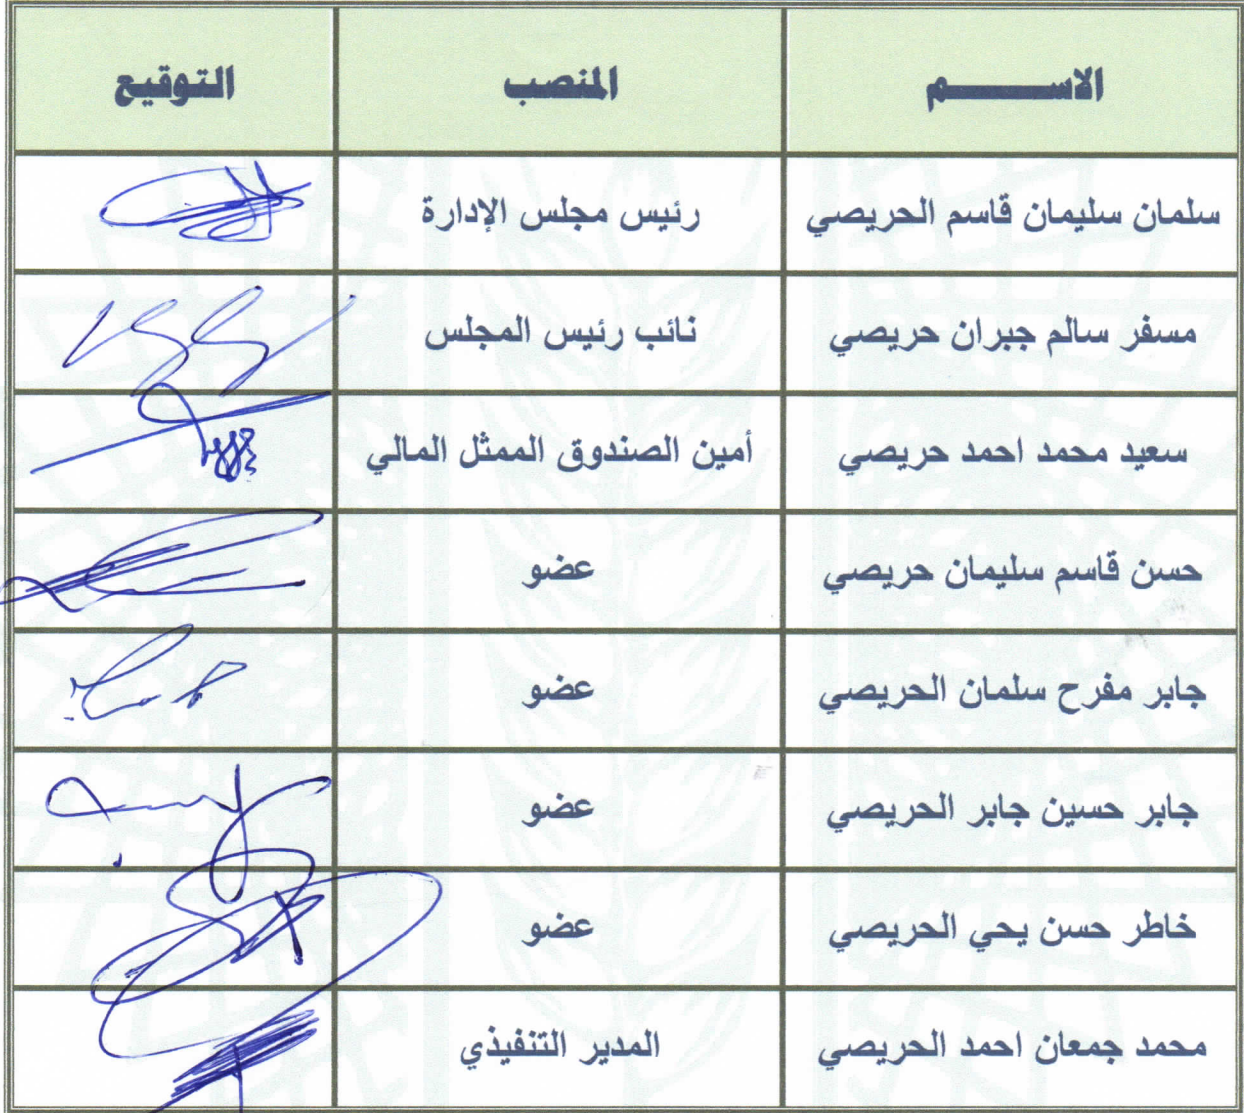 الاســـــــم المنصب التوقيع
سلمان سليمان قاسم الحريصي رئيس مجلس الإدارة
مسفر سالم جبران حريصي نائب رئيس المجلس
سعيد محمد احمد حريصي أمين الصندوق الممثل المالي
حسن قاسم سليمان حريصي عضو
جابر مفرح سلمان الحريصي عضو
جابر حسين جابر الحريصي عضو
خاطر حسن يحي الحريصي عضو
محمد جمعان احمد الحريصي المدير التنفيذي